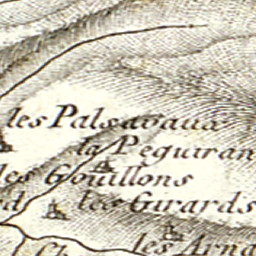 les Palsavaux
la Peguiran
les Gouillons
les Girards
les Arna